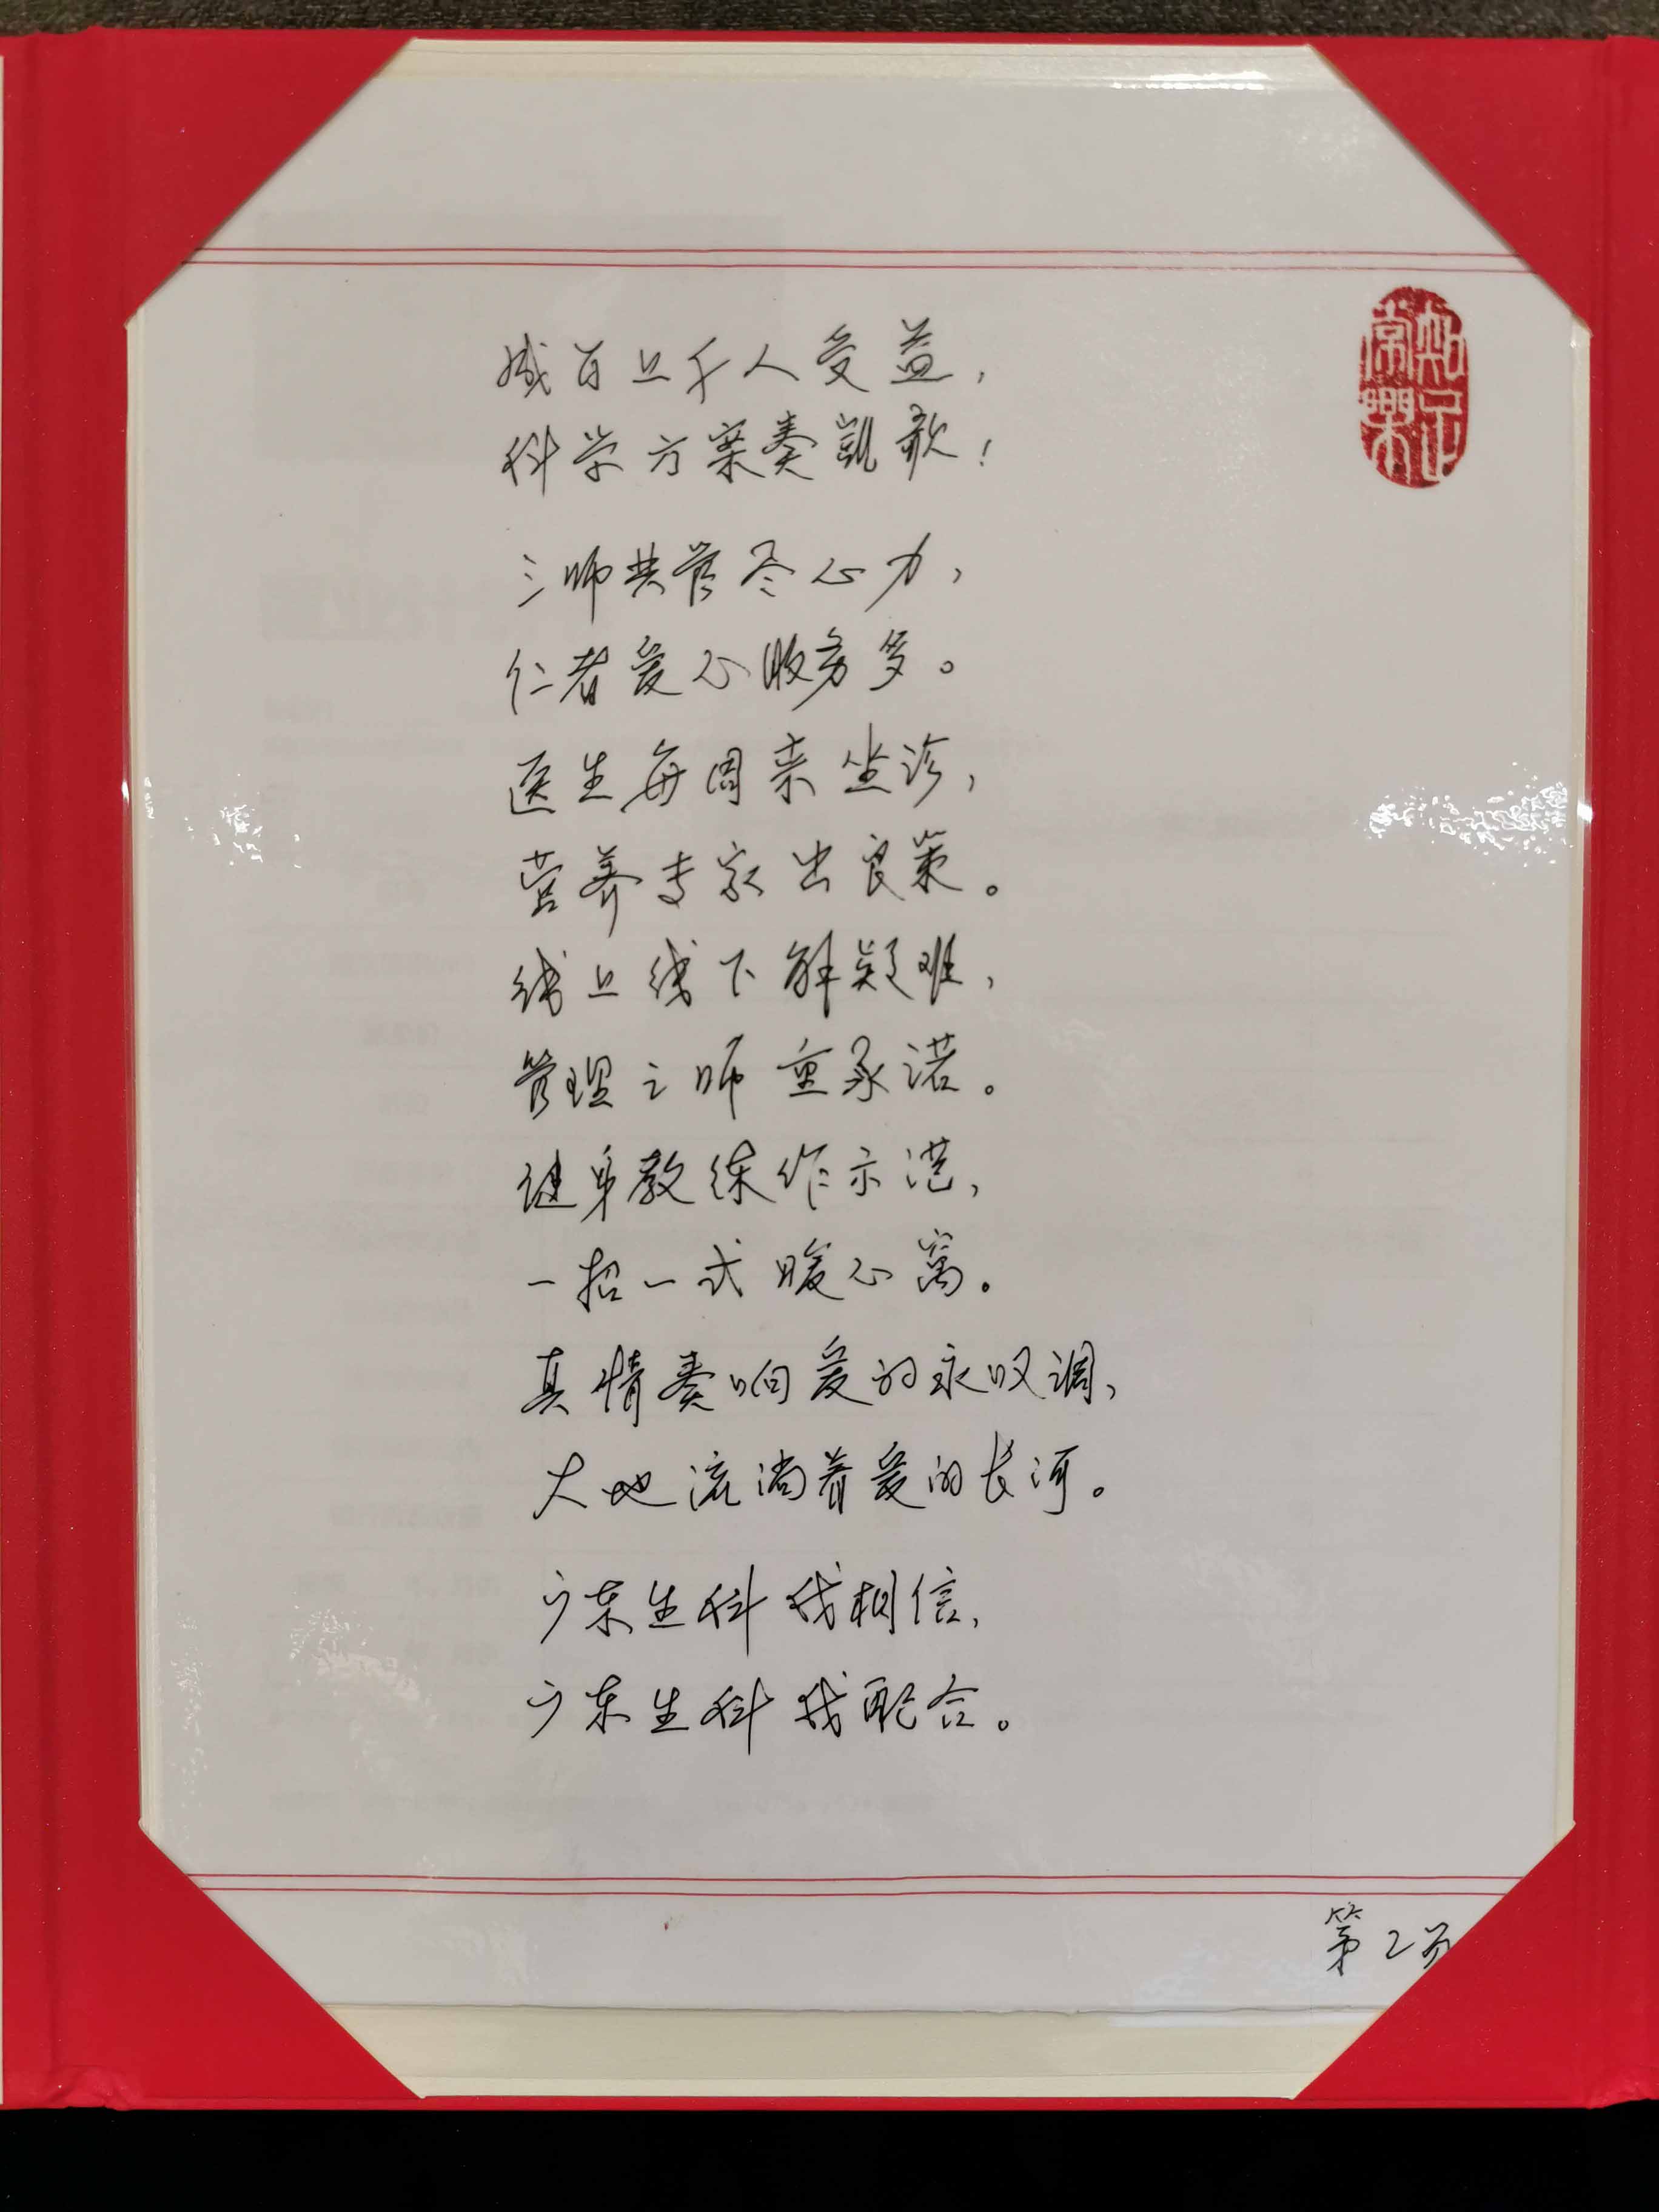 成百上千人受益，
科学方案奏凯歌！
三师共管尽心力，
仁者爱心服务多。
医生每周来坐诊，
营养专家出良策。
线上线下解疑难，
管理之师重承诺。
健身教练作示范，
一招一式暖心窝。
真情奏响爱的永叹调，
大地流淌着爱的长河。
广东生科我相信，
广东生科我配合。
知足常乐
第2页